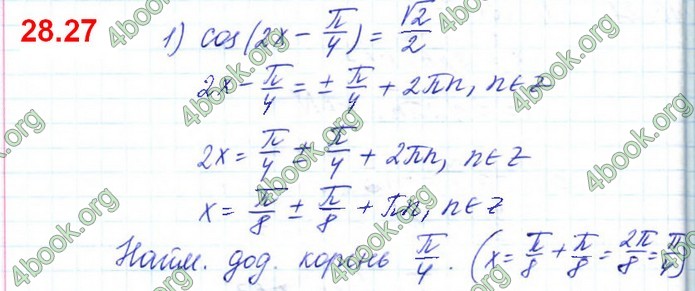 28.27
1) cos(2x − π/4) = √2/2
2x − π/4 = ± π/4 + 2πn, n ∈ Z
2x = π/4 ± π/4 + 2πn, n ∈ Z
x = π/8 ± π/8 + πn, n ∈ Z
Найм. дод. корень π/4. (x = π/8 + π/8 = 2π/8 = π/4)
4book.org
4book.org
4book.org
4book.org
4book.org
4book.org
4book.org
4book.org